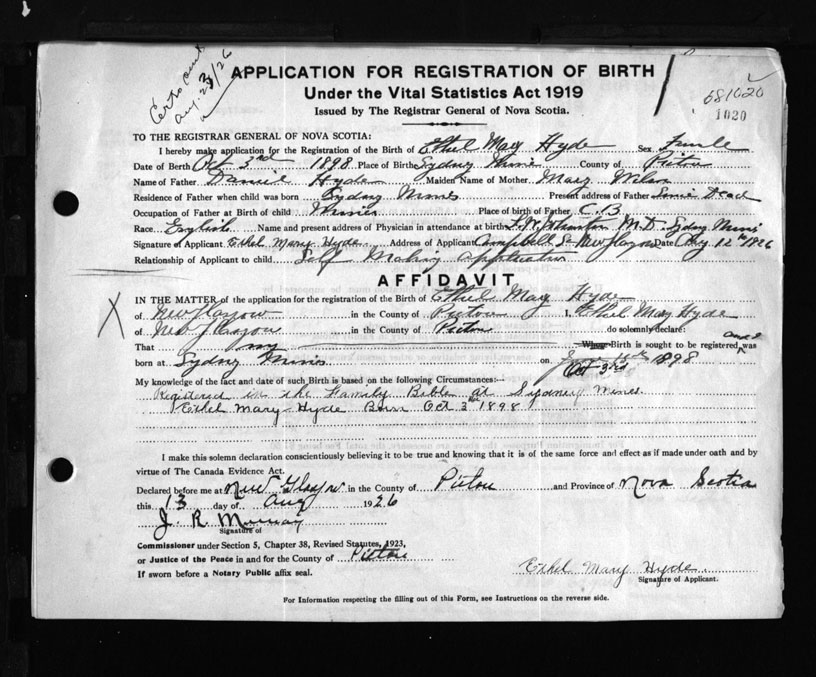 Cert. sent
Aug. 23/26
APPLICATION FOR REGISTRATION OF BIRTH
Under the Vital Statistics Act 1919
Issued by The Registrar General of Nova Scotia.
681020
1020
TO THE REGISTRAR GENERAL OF NOVA SCOTIA:
I hereby make application for the Registration of the Birth of Ethel May Hyde Sex Female
Date of Birth Oct 3rd 1898 Place of Birth Sydney Mines County of Pictou
Name of Father Daniel Hyde Maiden Name of Mother Mary
Residence of Father when child was born Sydney Mines Present address of Father Dead
Occupation of Father at Birth of child Miner Place of birth of Father C.B
Race English Name and present address of Physician in attendance at birth Johnston M.D. Sydney Mines
Signature of Applicant Ethel Mary Hyde Address of Applicant Campbell St New Glasgow Date Aug 12th 1926
Relationship of Applicant to child Self Making application
AFFIDAVIT
IN THE MATTER of the application for the registration of the Birth of Ethel May Hyde
of New Glasgow in the County of Pictou I, Ethel May Hyde
of New Glasgow in the County of Pictou do solemnly declare:
That my Whose Birth is sought to be registered and was
born at Sydney Mines on Oct 3rd 1898
My knowledge of the fact and date of such Birth is based on the following Circumstances:—
Registered in the Family Bible at Sydney Mines
Ethel Mary Hyde Born Oct 3rd 1898
I make this solemn declaration conscientiously believing it to be true and knowing that it is of the same force and effect as if made under oath and by
virtue of The Canada Evidence Act.
Declared before me at New Glasgow in the County of Pictou and Province of Nova Scotia
this 13 day of Aug 1926
J. R. Murray
Signature of
Commissioner under Section 5, Chapter 38, Revised Statutes, 1923,
or Justice of the Peace in and for the County of Pictou
If sworn before a Notary Public affix seal.
Ethel Mary Hyde
Signature of Applicant.
For Information respecting the filling out of this Form, see Instructions on the reverse side.